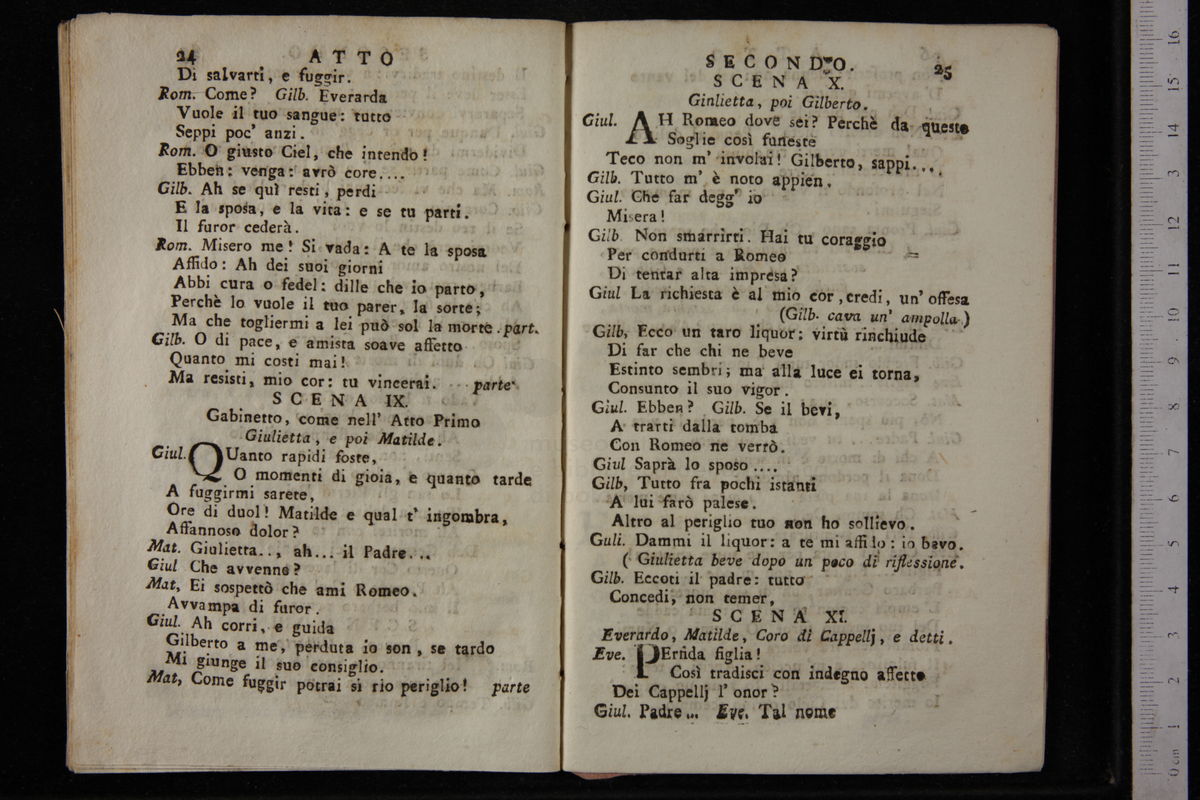 24 ATTO
Di salvarti, e fuggir.
Rom. Come? Gilb. Everarda
Vuole il tuo sangue: tutto
Seppi poc' anzi.
Rom. O giusto Ciel, che intendo!
Ebben: venga: avrò core....
Gilb. Ah se quì resti, perdi
E la sposa, e la vita: e se tu parti.
Il furor cederà.
Rom. Misero me! Si vada: A te la sposa
Affido: Ah dei suoi giorni
Abbi cura o fedel: dille che io parto,
Perchè lo vuole il tuo parer, la sorte;
Ma che togliermi a lei può sol la morte. part.
Gilb. O di pace, e amista soave affetto
Quanto mi costi mai!
Ma resisti, mio cor: tu vincerai. parte
SCENA IX.
Gabinetto, come nell' Atto Primo
Giulietta, e poi Matilde.
Giul. QUanto rapidi foste,
O momenti di gioia, e quanto tarde
A fuggirmi sarete,
Ore di duol! Matilde e qual t' ingombra,
Affannoso dolor?
Mat. Giulietta.., ah... il Padre...
Giul Che avvenne?
Mat, Ei sospettò che ami Romeo.
Avvampa di furor.
Giul. Ah corri, e guida
Gilberto a me, perduta io son, se tardo
Mi giunge il suo consiglio.
Mat, Come fuggir potrai si rio periglio! parte
SECONDO. 25
SCENA X.
Ginlietta, poi Gilberto.
Giul. AH Romeo dove sei? Perchè da queste
Soglie così funeste
Teco non m' involai! Gilberto, sappi....
Gilb. Tutto m' è noto appien.
Giul. Che far degg' io
Misera!
Gilb Non smarrirti. Hai tu coraggio
Per condurti a Romeo
Di tentar alta impresa?
Giul La richiesta è al mio cor, credi, un' offesa
(Gilb. cava un' ampolla.)
Gilb, Ecco un taro liquor: virtù rinchiude
Di far che chi ne beve
Estinto sembri; ma alla luce ei torna,
Consunto il suo vigor.
Giul. Ebben? Gilb. Se il bevi,
A trarti dalla tomba
Con Romeo ne verrò.
Giul Saprà lo sposo ....
Gilb, Tutto fra pochi istanti
A lui farò palese.
Altro al periglio tuo non ho sollievo.
Guli. Dammi il liquor: a te mi affido: io bevo.
( Giulietta beve dopo un poco di riflessione.
Gilb. Eccoti il padre: tutto
Concedi, non temer,
SCENA XI.
Everardo, Matilde, Coro di Cappellj, e detti.
Eve. PErfida figlia!
Così tradisci con indegno affetto
Dei Cappellj l' onor?
Giul. Padre... Eve. Tal nome